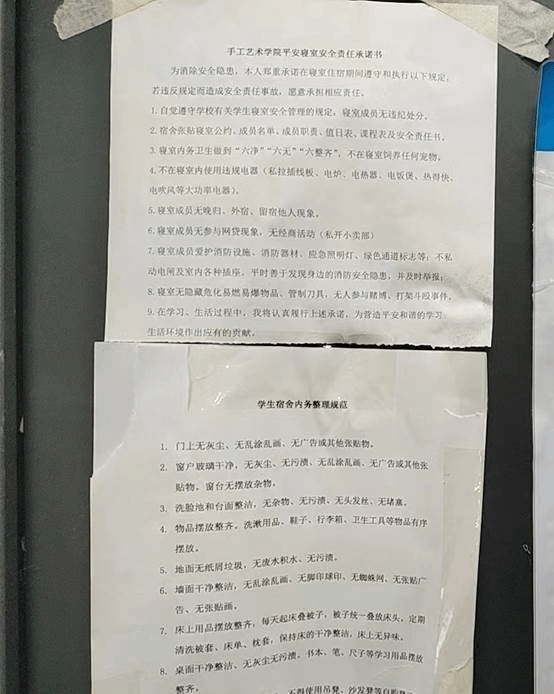 手工艺术学院平安寝室安全责任承诺书
为消除安全隐患，本人郑重承诺在寝室住宿期间遵守和执行以下规定，
若违反规定而造成安全责任事故，愿意承担相应责任。
1.自觉遵守学校有关学生寝室安全管理的规定，寝室成员无违纪处分。
2.宿舍张贴寝室公约、成员名单、成员职责、值日表、课程表及安全责任书。
3.寝室内务卫生做到“六净”“六无”“六整齐”，不在寝室饲养任何宠物。
4.不在寝室内使用违规电器（私拉插线板、电炉、电热器、电饭煲、热得快、
电吹风等大功率电器）。
5.寝室成员无晚归、外宿、留宿他人现象。
6.寝室成员无参与网贷现象，无经商活动（私开小卖部）
7.寝室成员爱护消防设施、消防器材、应急照明灯、绿色通道标志等；不私
动电闸及室内各种插座。平时善于发现身边的消防安全隐患，并及时举报；
8.寝室无隐藏危化易燃易爆物品、管制刀具，无人参与赌博、打架斗殴事件。
9.在学习、生活过程中，我将认真履行上述承诺，为营造平安和谐的学习、
生活环境作出应有的贡献。
学生宿舍内务整理规范
1. 门上无灰尘、无乱涂乱画、无广告或其他张贴物。
2. 窗户玻璃干净，无灰尘、无污渍、无乱涂乱画、无广告或其他张
贴物，窗台无摆放杂物。
3. 洗脸池和台面整洁，无杂物、无污渍、无头发丝、无堵塞。
4. 物品摆放整齐。洗漱用品、鞋子、行李箱、卫生工具等物品有序
摆放。
5. 地面无纸屑垃圾，无废水积水、无污渍。
6. 墙面干净整洁，无乱涂乱画、无脚印球印、无蜘蛛网、无张贴广
告、无张贴画。
7. 床上用品摆放整齐，每天起床叠被子，被子统一叠放床头，定期
清洗被套、床单、枕套，保持床的干净整洁，床上无异味。
8. 桌面干净整洁、无灰尘无污渍，书本、笔、尺子等学习用品摆放
整齐。
不得使用吊凳、沙发凳等自购